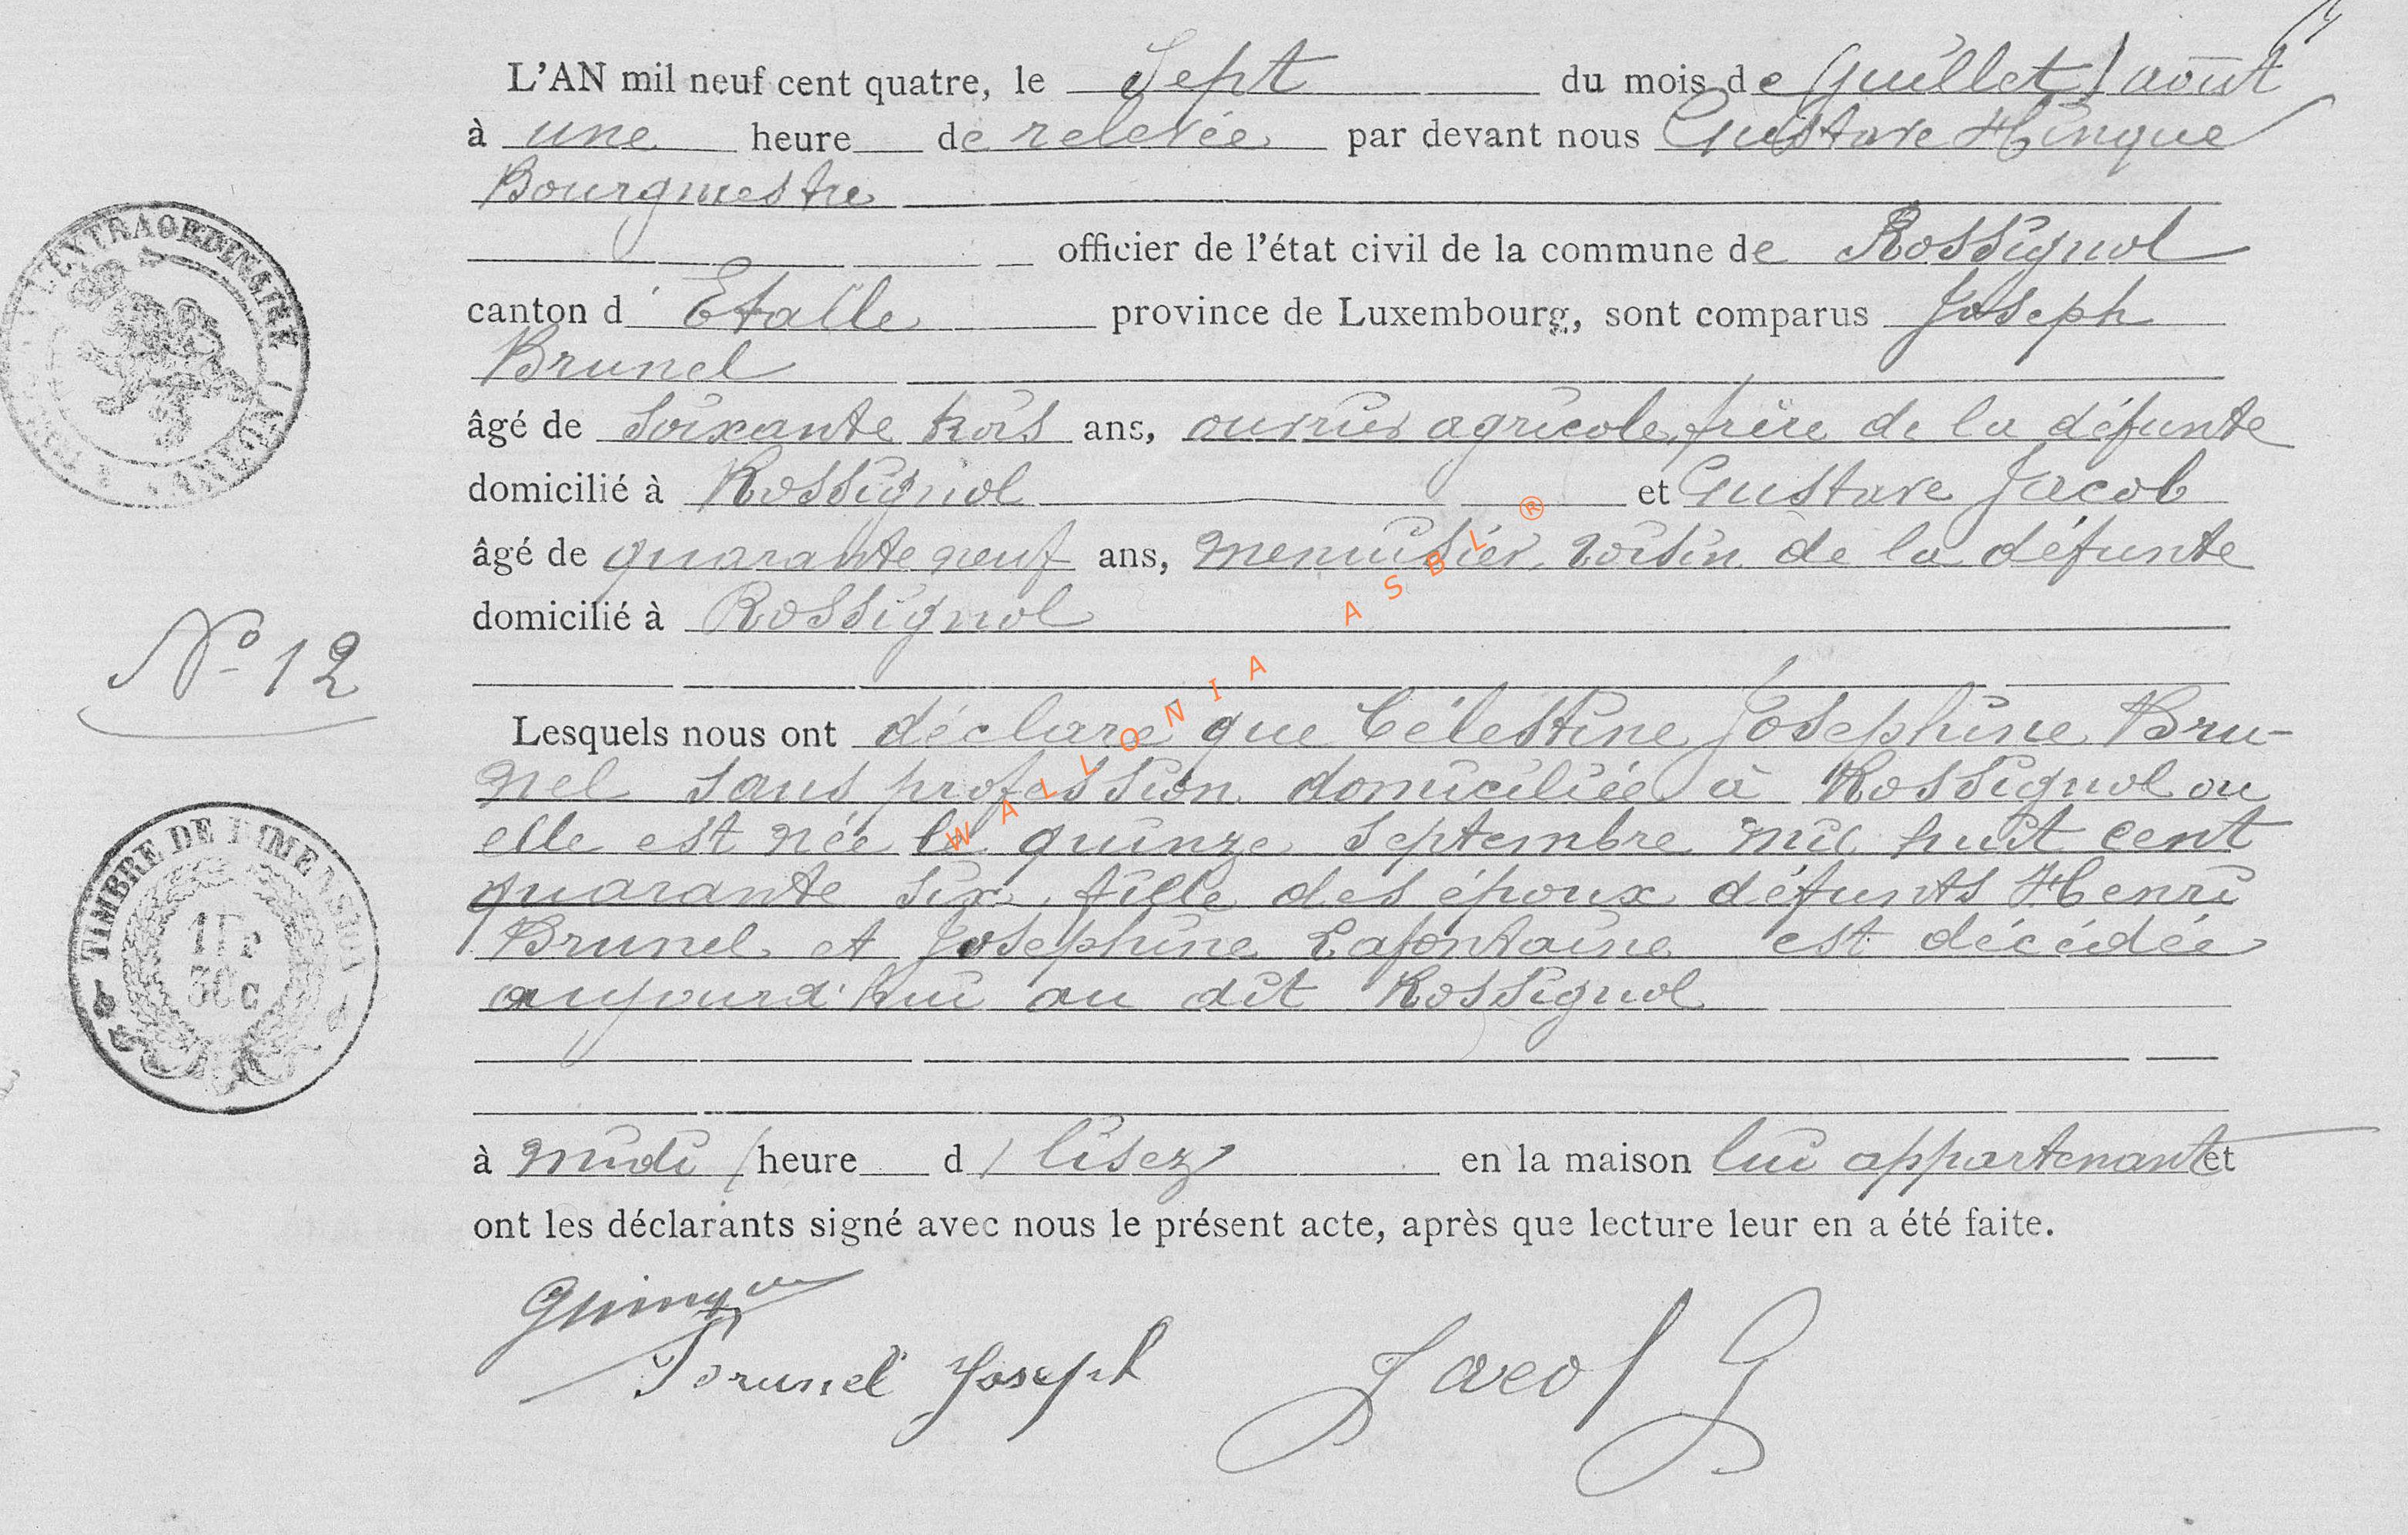 L'AN mil neuf cent quatre, le Sept du mois de (juillet) août
à une heure de relevée par devant nous Gustave Hinque
Bourgmestre
officier de l'état civil de la commune de Rossignol
canton d' Etalle province de Luxembourg, sont comparus Joseph
Brunel
âgé de soixante trois ans, ouvrier agricole, frère de la défunte
domicilié à Rossignol et Gustave Jacob
âgé de quarante neuf ans, menuisier, voisin de la défunte
domicilié à Rossignol
N° 12
Lesquels nous ont déclaré que Célestine Joséphine Bru-
nel sans profession domiciliée à Rossignol ou
elle est née le quinze septembre mil huit cent
quarante six, fille des époux défunts Henri
Brunel et Joséphine Lafontaine est décédée
aujourd'hui au dit Rossignol
à midi (heure d) lisez en la maison lui appartenant et
ont les déclarants signé avec nous le présent acte, après que lecture leur en a été faite.
Brunel Joseph Jacob G
TIMBRE DE DIMENSION
1Fr
30c
WALLONIA ASBL ®